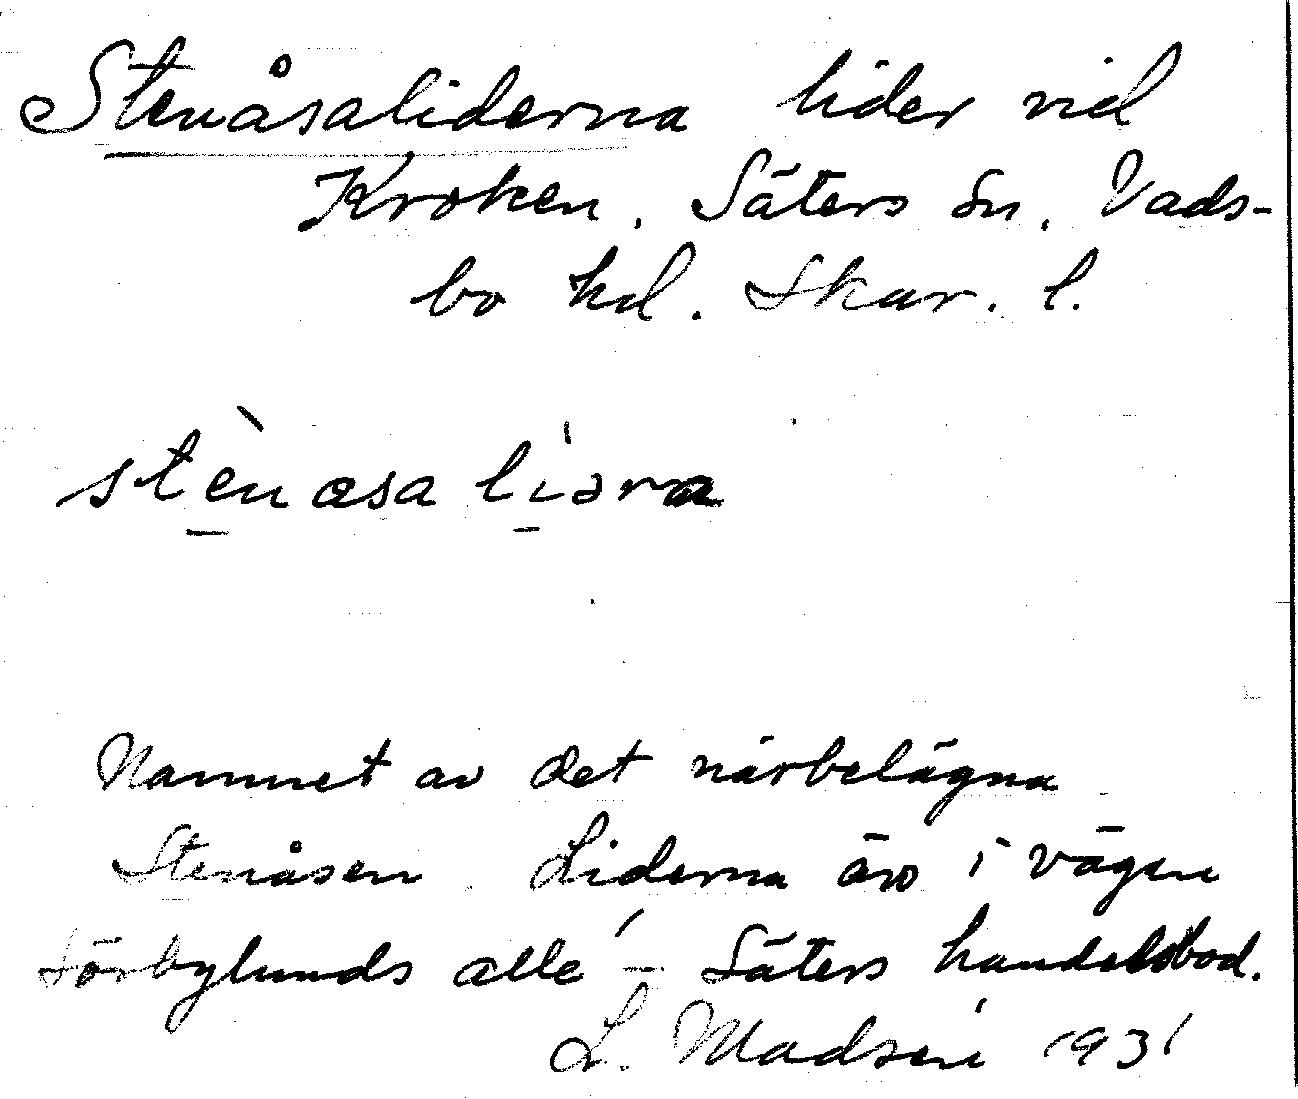 Stenåsaliderna lider vid
Kroken, Säters Sn, Vads-
bo hd. Skar. l.
stènasa liərna
Namnet av det närbelägna
Stenåsen. Liderna äro i vägen
Törbylunds allé – Säters handelsbod.
L. Madsén 1931